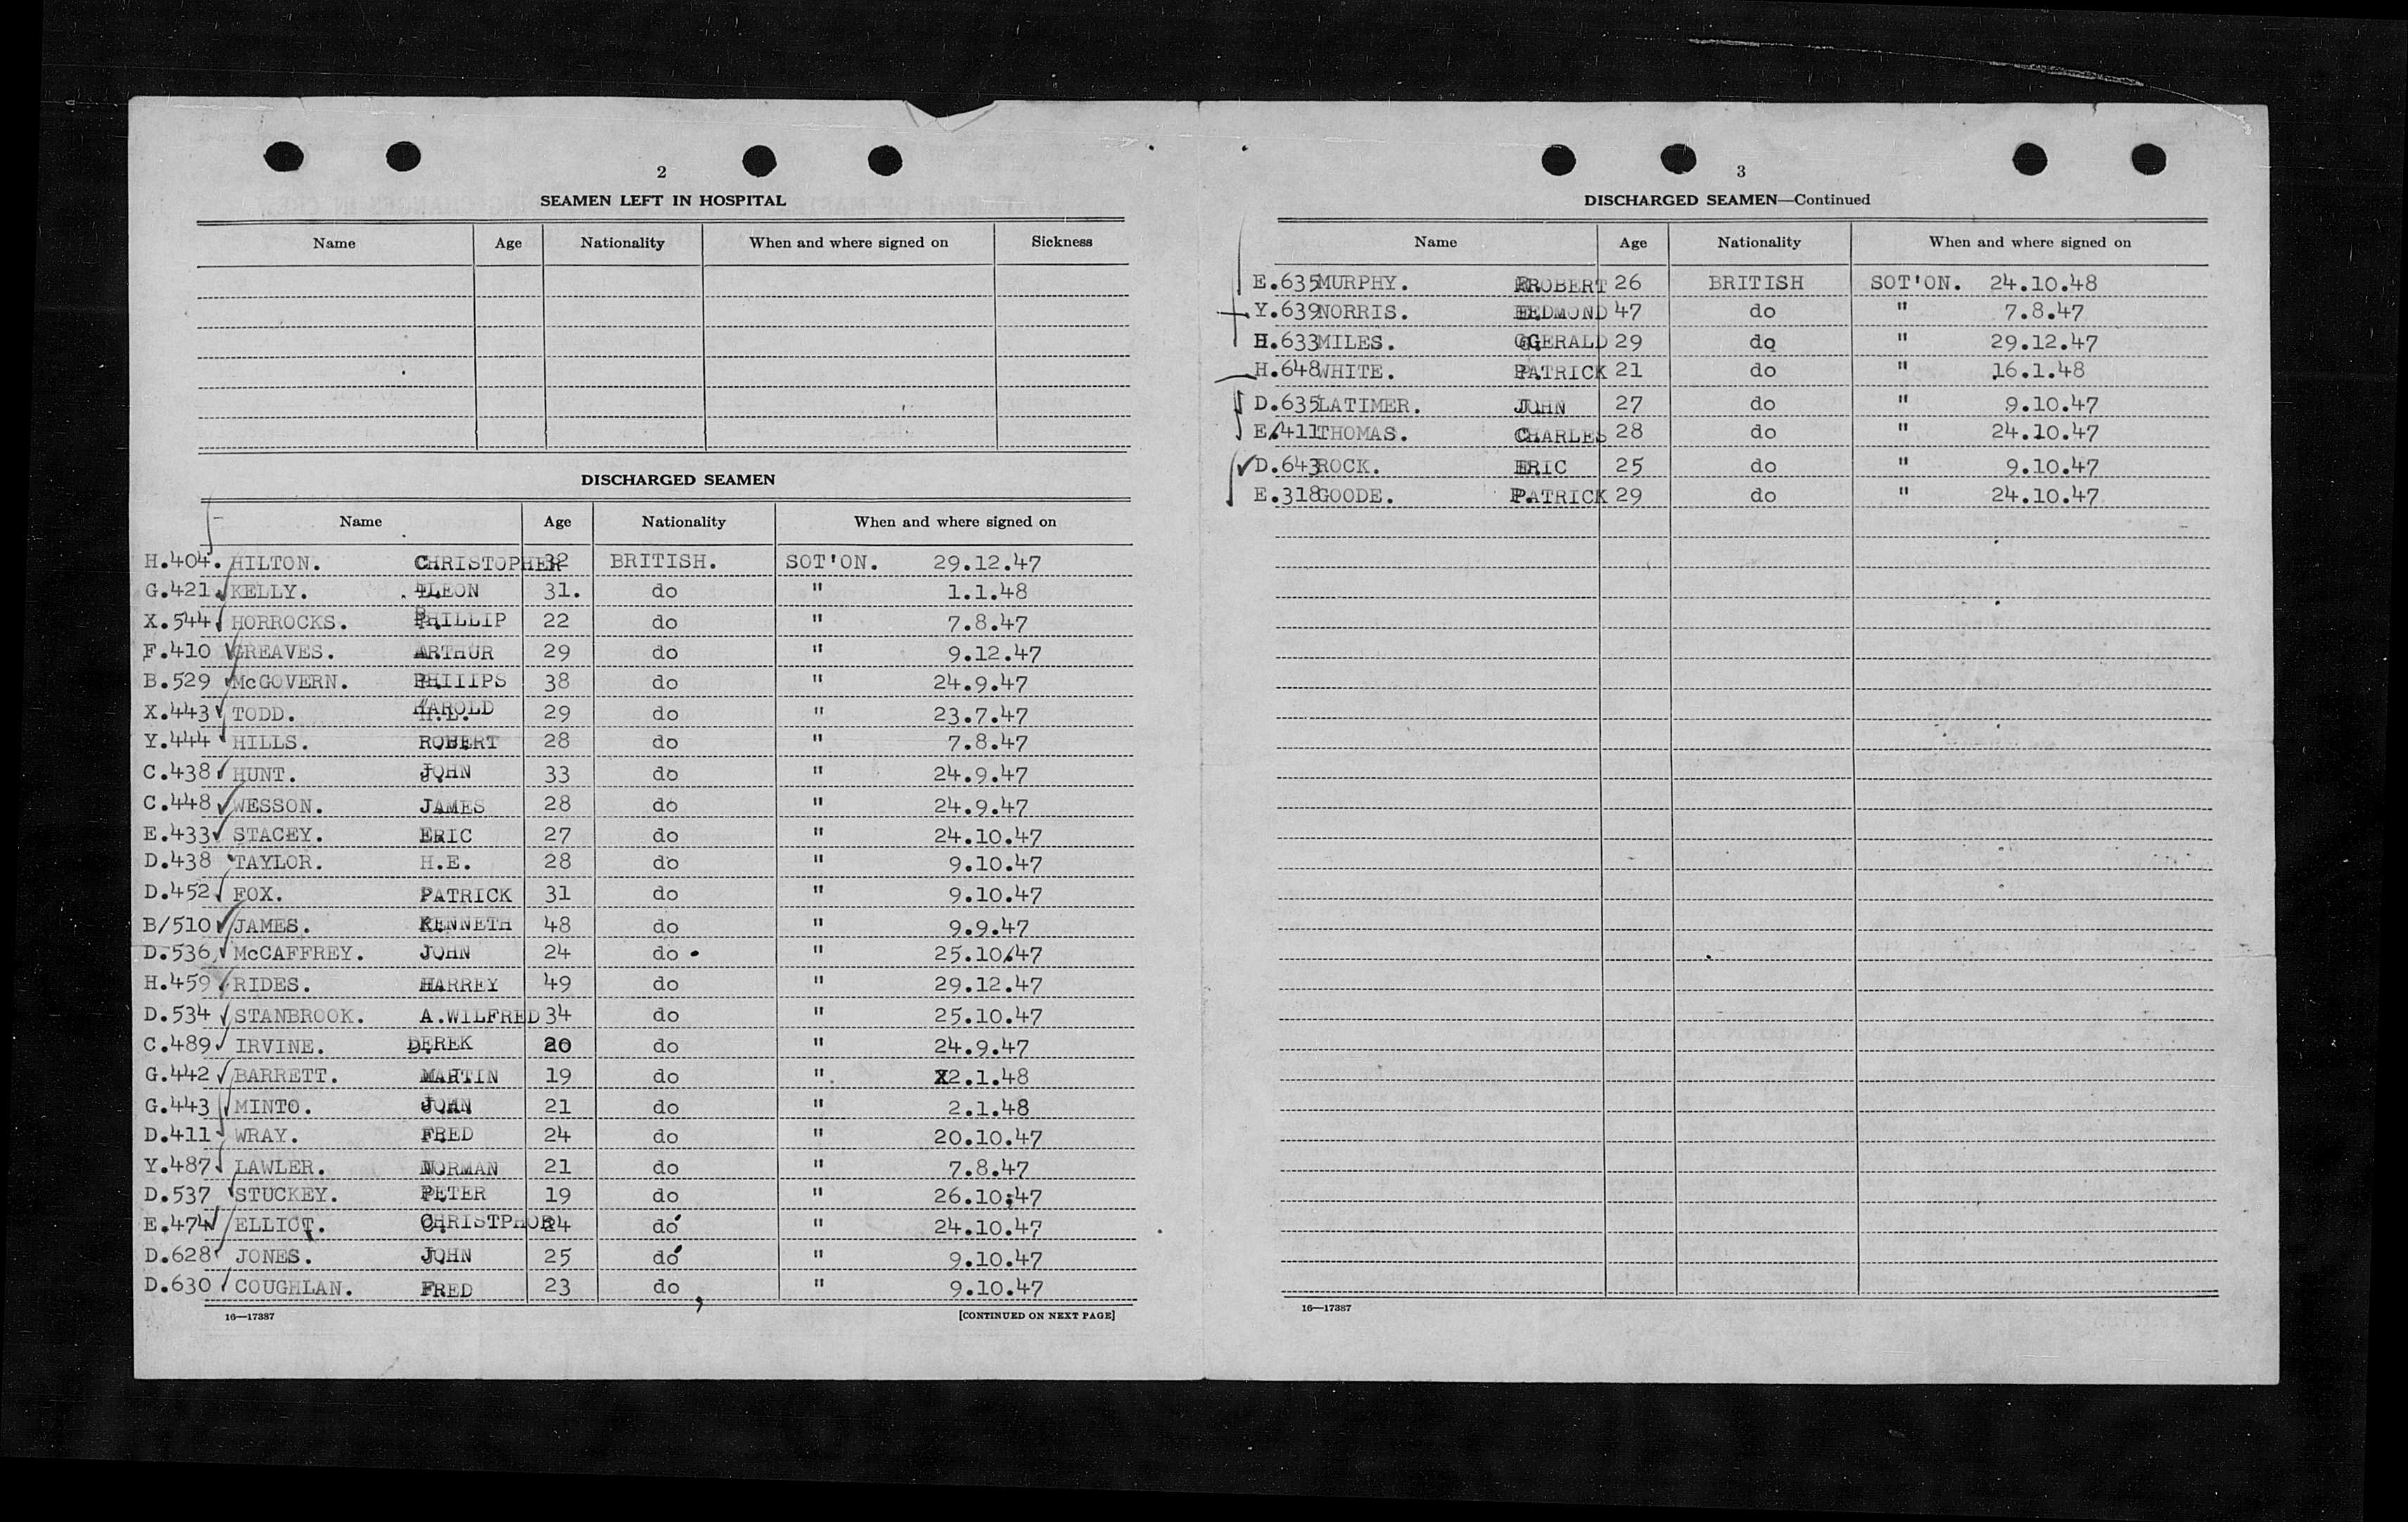 2
SEAMEN LEFT IN HOSPITAL
Name Age Nationality When and where signed on Sickness
DISCHARGED SEAMEN
Name Age Nationality When and where signed on
H.404. HILTON. CHRISTOPHER 32 BRITISH. SOT'ON. 29.12.47
G.421 KELLY. LEON 31. do " 1.1.48
X.544 HORROCKS. PHILLIP 22 do " 7.8.47
F.410 GREAVES. ARTHUR 29 do " 9.12.47
B.529 McGOVERN. PHILIPS 38 do " 24.9.47
X.443 TODD. HAROLD 29 do " 23.7.47
Y.444 HILLS. ROBERT 28 do " 7.8.47
C.438 HUNT. JOHN 33 do " 24.9.47
C.448 WESSON. JAMES 28 do " 24.9.47
E.433 STACEY. ERIC 27 do " 24.10.47
D.438 TAYLOR. H.E. 28 do " 9.10.47
D.452 FOX. PATRICK 31 do " 9.10.47
B/510 JAMES. KENNETH 48 do " 9.9.47
D.536 McCAFFREY. JOHN 24 do " 25.10.47
H.459 RIDES. HARREY 49 do " 29.12.47
D.534 STANBROOK. A.WILFRED 34 do " 25.10.47
C.489 IRVINE. DEREK 20 do " 24.9.47
G.442 BARRETT. MARTIN 19 do " 2.1.48
G.443 MINTO. JOHN 21 do " 2.1.48
D.411 WRAY. FRED 24 do " 20.10.47
Y.487 LAWLER. NORMAN 21 do " 7.8.47
D.537 STUCKEY. PETER 19 do " 26.10;47
E.474 ELLIOT. CHRISTPHOR 24 do " 24.10.47
D.628 JONES. JOHN 25 do " 9.10.47
D.630 COUGHLAN. FRED 23 do " 9.10.47
16—17387 [CONTINUED ON NEXT PAGE]
3
DISCHARGED SEAMEN—Continued
Name Age Nationality When and where signed on
E.635 MURPHY. ROBERT 26 BRITISH SOT'ON. 24.10.48
Y.639 NORRIS. EDMOND 47 do " 7.8.47
H.633 MILES. GERALD 29 do " 29.12.47
H.648 WHITE. PATRICK 21 do " 16.1.48
D.635 LATIMER. JOHN 27 do " 9.10.47
E.411 THOMAS. CHARLES 28 do " 24.10.47
D.643 ROCK. ERIC 25 do " 9.10.47
E.318 GOODE. PATRICK 29 do " 24.10.47
16—17387